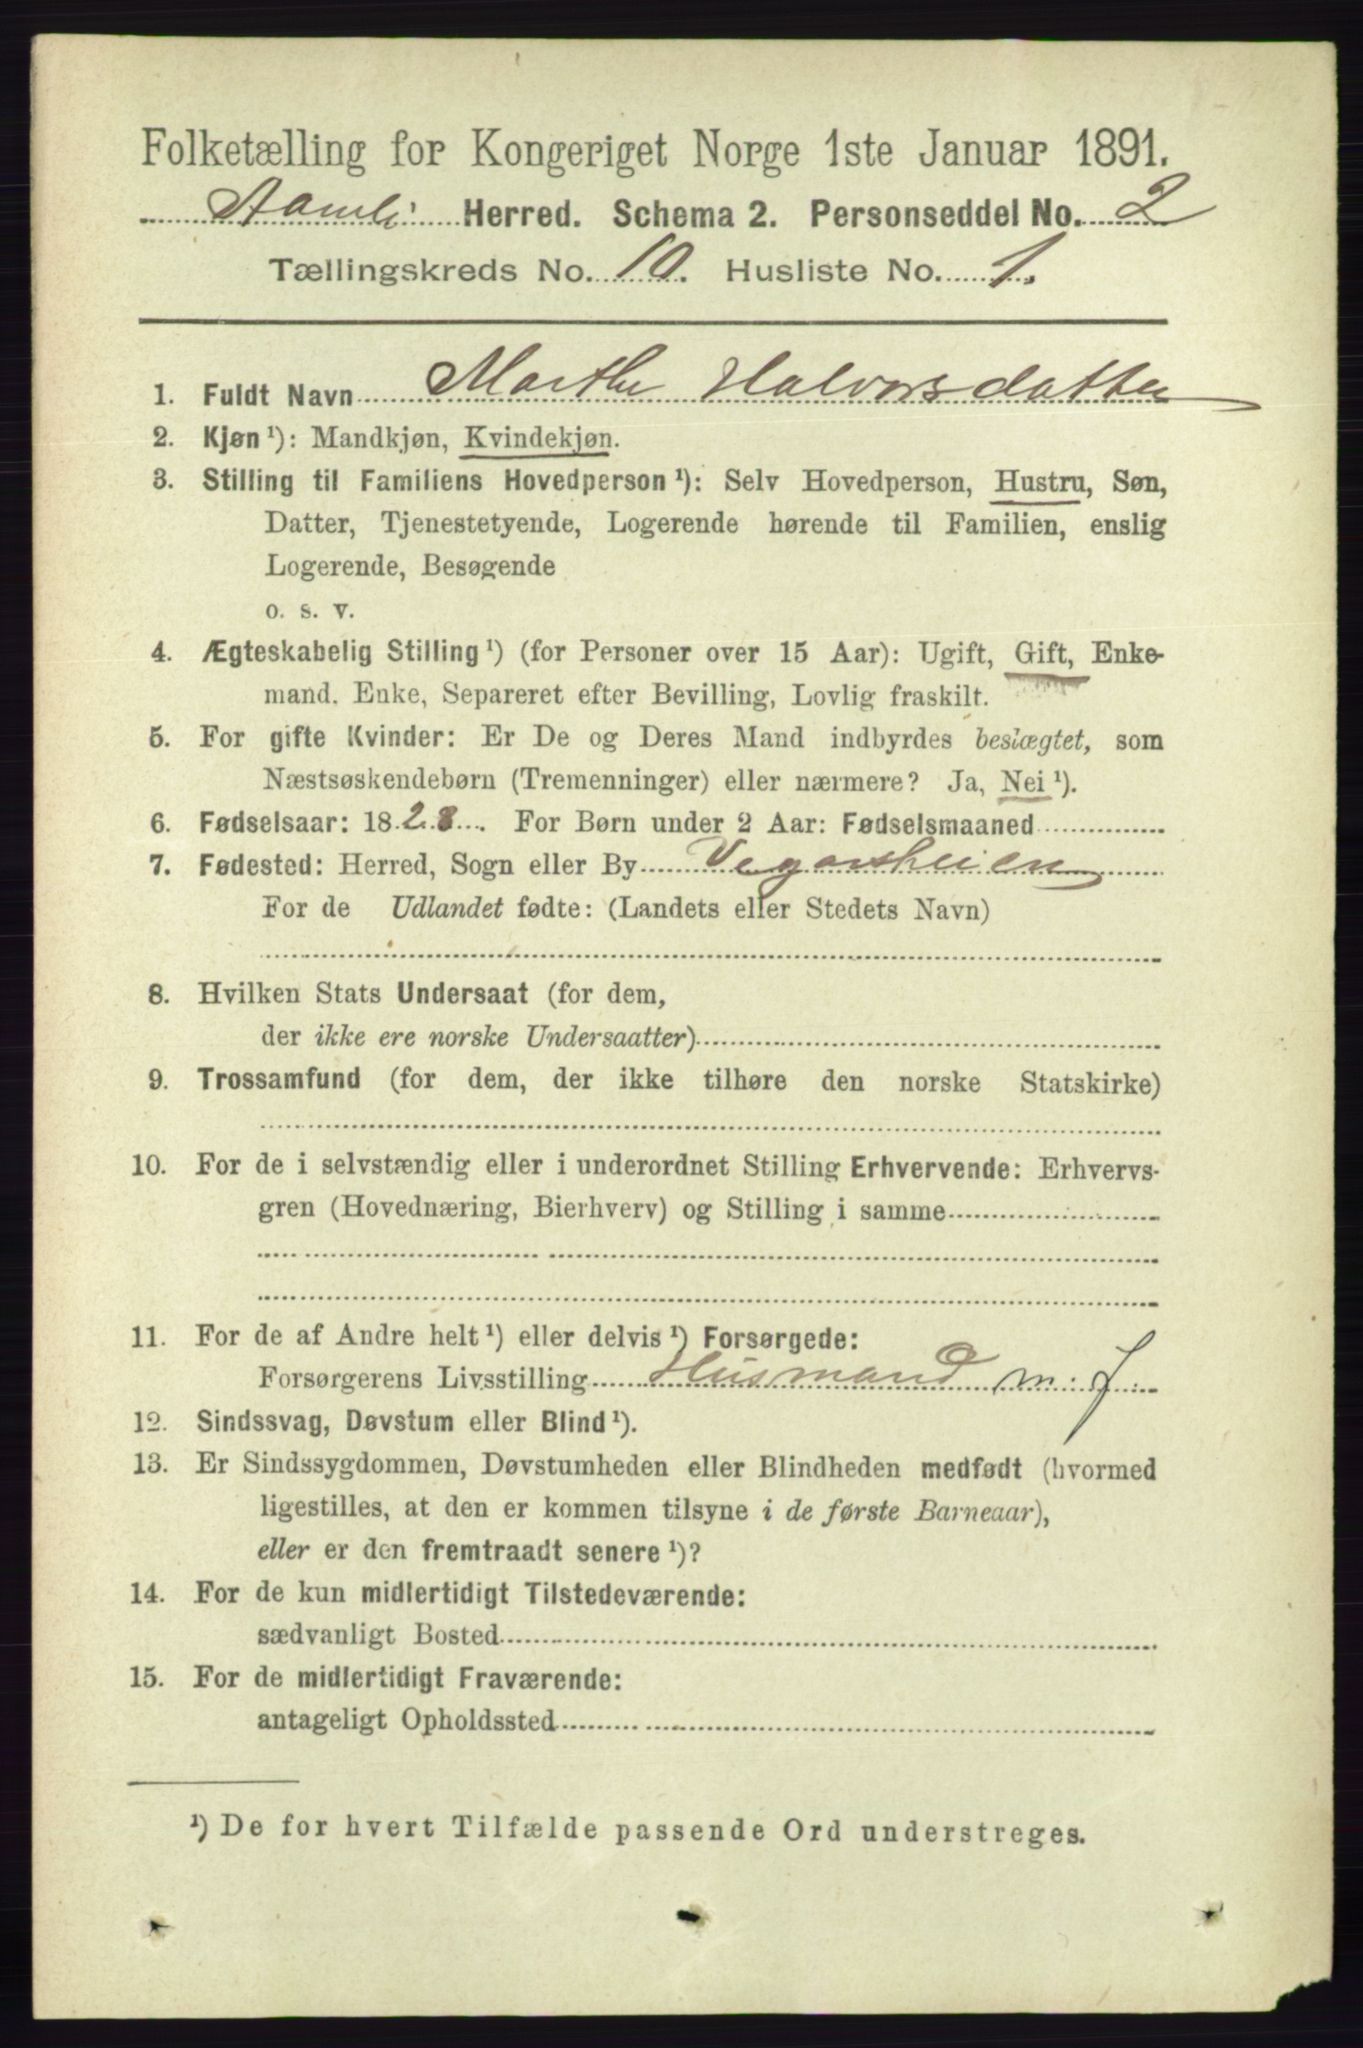 Folketælling for Kongeriget Norge 1ste Januar 1891.
Aamli Herred. Schema 2. Personseddel No. 2
Tællingskreds No. 10. Husliste No. 1.
1. Fuldt Navn Marthe Halvorsdatter
2. Kjøn ¹): Mandkjøn, Kvindekjøn.
3. Stilling til Familiens Hovedperson ¹): Selv Hovedperson, Hustru, Søn,
Datter, Tjenestetyende, Logerende hørende til Familien, enslig
Logerende, Besøgende
o. s. v.
4. Ægteskabelig Stilling ¹) (for Personer over 15 Aar): Ugift, Gift, Enke-
mand. Enke, Separeret efter Bevilling, Lovlig fraskilt.
5. For gifte Kvinder: Er De og Deres Mand indbyrdes beslægtet, som
Næstsøskendebørn (Tremenninger) eller nærmere? Ja, Nei ¹).
6. Fødselsaar: 1828. For Børn under 2 Aar: Fødselsmaaned
7. Fødested: Herred, Sogn eller By Vegarsheien
For de Udlandet fødte: (Landets eller Stedets Navn)
8. Hvilken Stats Undersaat (for dem,
der ikke ere norske Undersaatter)
9. Trossamfund (for dem, der ikke tilhøre den norske Statskirke)
10. For de i selvstændig eller i underordnet Stilling Erhvervende: Erhvervs-
gren (Hovednæring, Bierhverv) og Stilling i samme
11. For de af Andre helt ¹) eller delvis ¹) Forsørgede:
Forsørgerens Livsstilling Husmand m. J.
12. Sindssvag, Døvstum eller Blind ¹).
13. Er Sindssygdommen, Døvstumheden eller Blindheden medfødt (hvormed
ligestilles, at den er kommen tilsyne i de første Barneaar),
eller er den fremtraadt senere ¹)?
14. For de kun midlertidigt Tilstedeværende:
sædvanligt Bosted
15. For de midlertidigt Fraværende:
antageligt Opholdssted
¹) De for hvert Tilfælde passende Ord understreges.